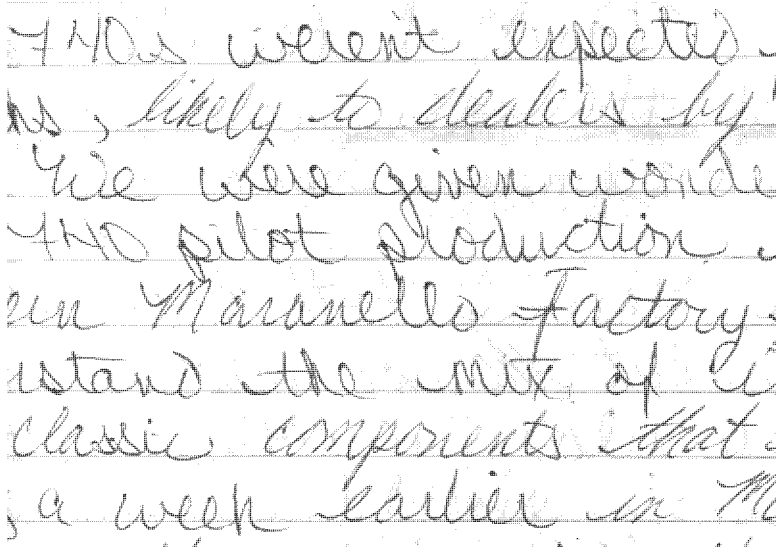 740s weren't expected
ns, likely to dealers by
We were given wonde
740 pilot production
ern Maranello Factory
rstand the mix of
classic components that
, a week earlier in M